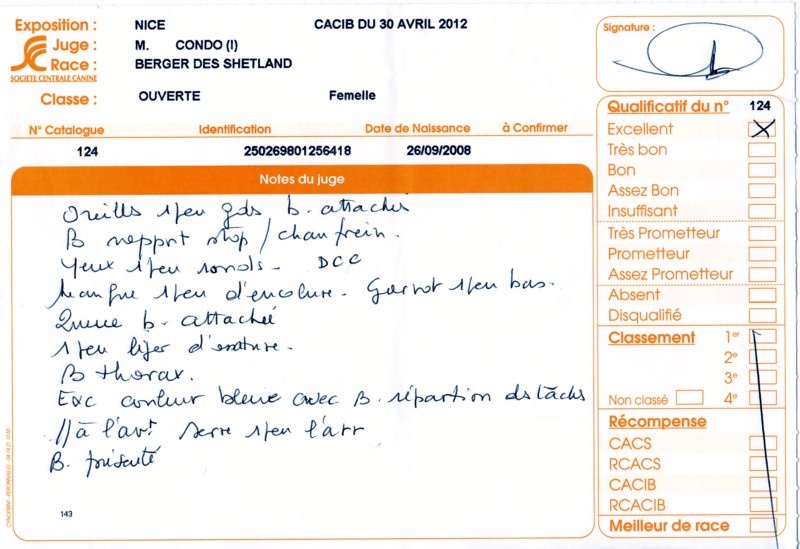 Exposition : NICE CACIB DU 30 AVRIL 2012
Juge : M. CONDO (I)
Race : BERGER DES SHETLAND
SOCIETE CENTRALE CANINE
Classe : OUVERTE Femelle
N° Catalogue Identification Date de Naissance à Confirmer
124 250269801256418 26/09/2008
Notes du juge
Oreilles 1 peu gds b. attachés
B rapport stop / chanfrein.
Yeux 1 peu ronds - DCC
Manque 1 peu d'encolure. Garrot 1 peu bas.
Queue b. attachée
1 peu léger d'ossature.
B thorax.
Exc couleur bleue avec B. répartion des tâches
// à l'avt serre 1 peu l'arr
B. présenté
143
Signature :
Qualificatif du n° 124
Excellent X
Très bon
Bon
Assez Bon
Insuffisant
Très Prometteur
Prometteur
Assez Prometteur
Absent
Disqualifié
Classement 1er
2e
3e
Non classé 4e
Récompense
CACS
RCACS
CACIB
RCACIB
Meilleur de race